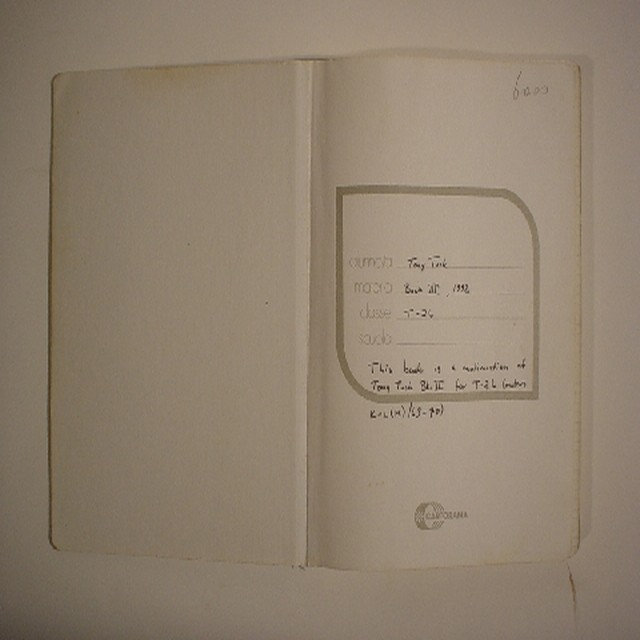 6000
alunno/a Tony Tuck
materia Book III, 1992
classe T-26
scuola
This book is a continuation of
Tony Tuck Bk. II for T-26 (meters
K-L(H)/69-70)
CARTORAMA